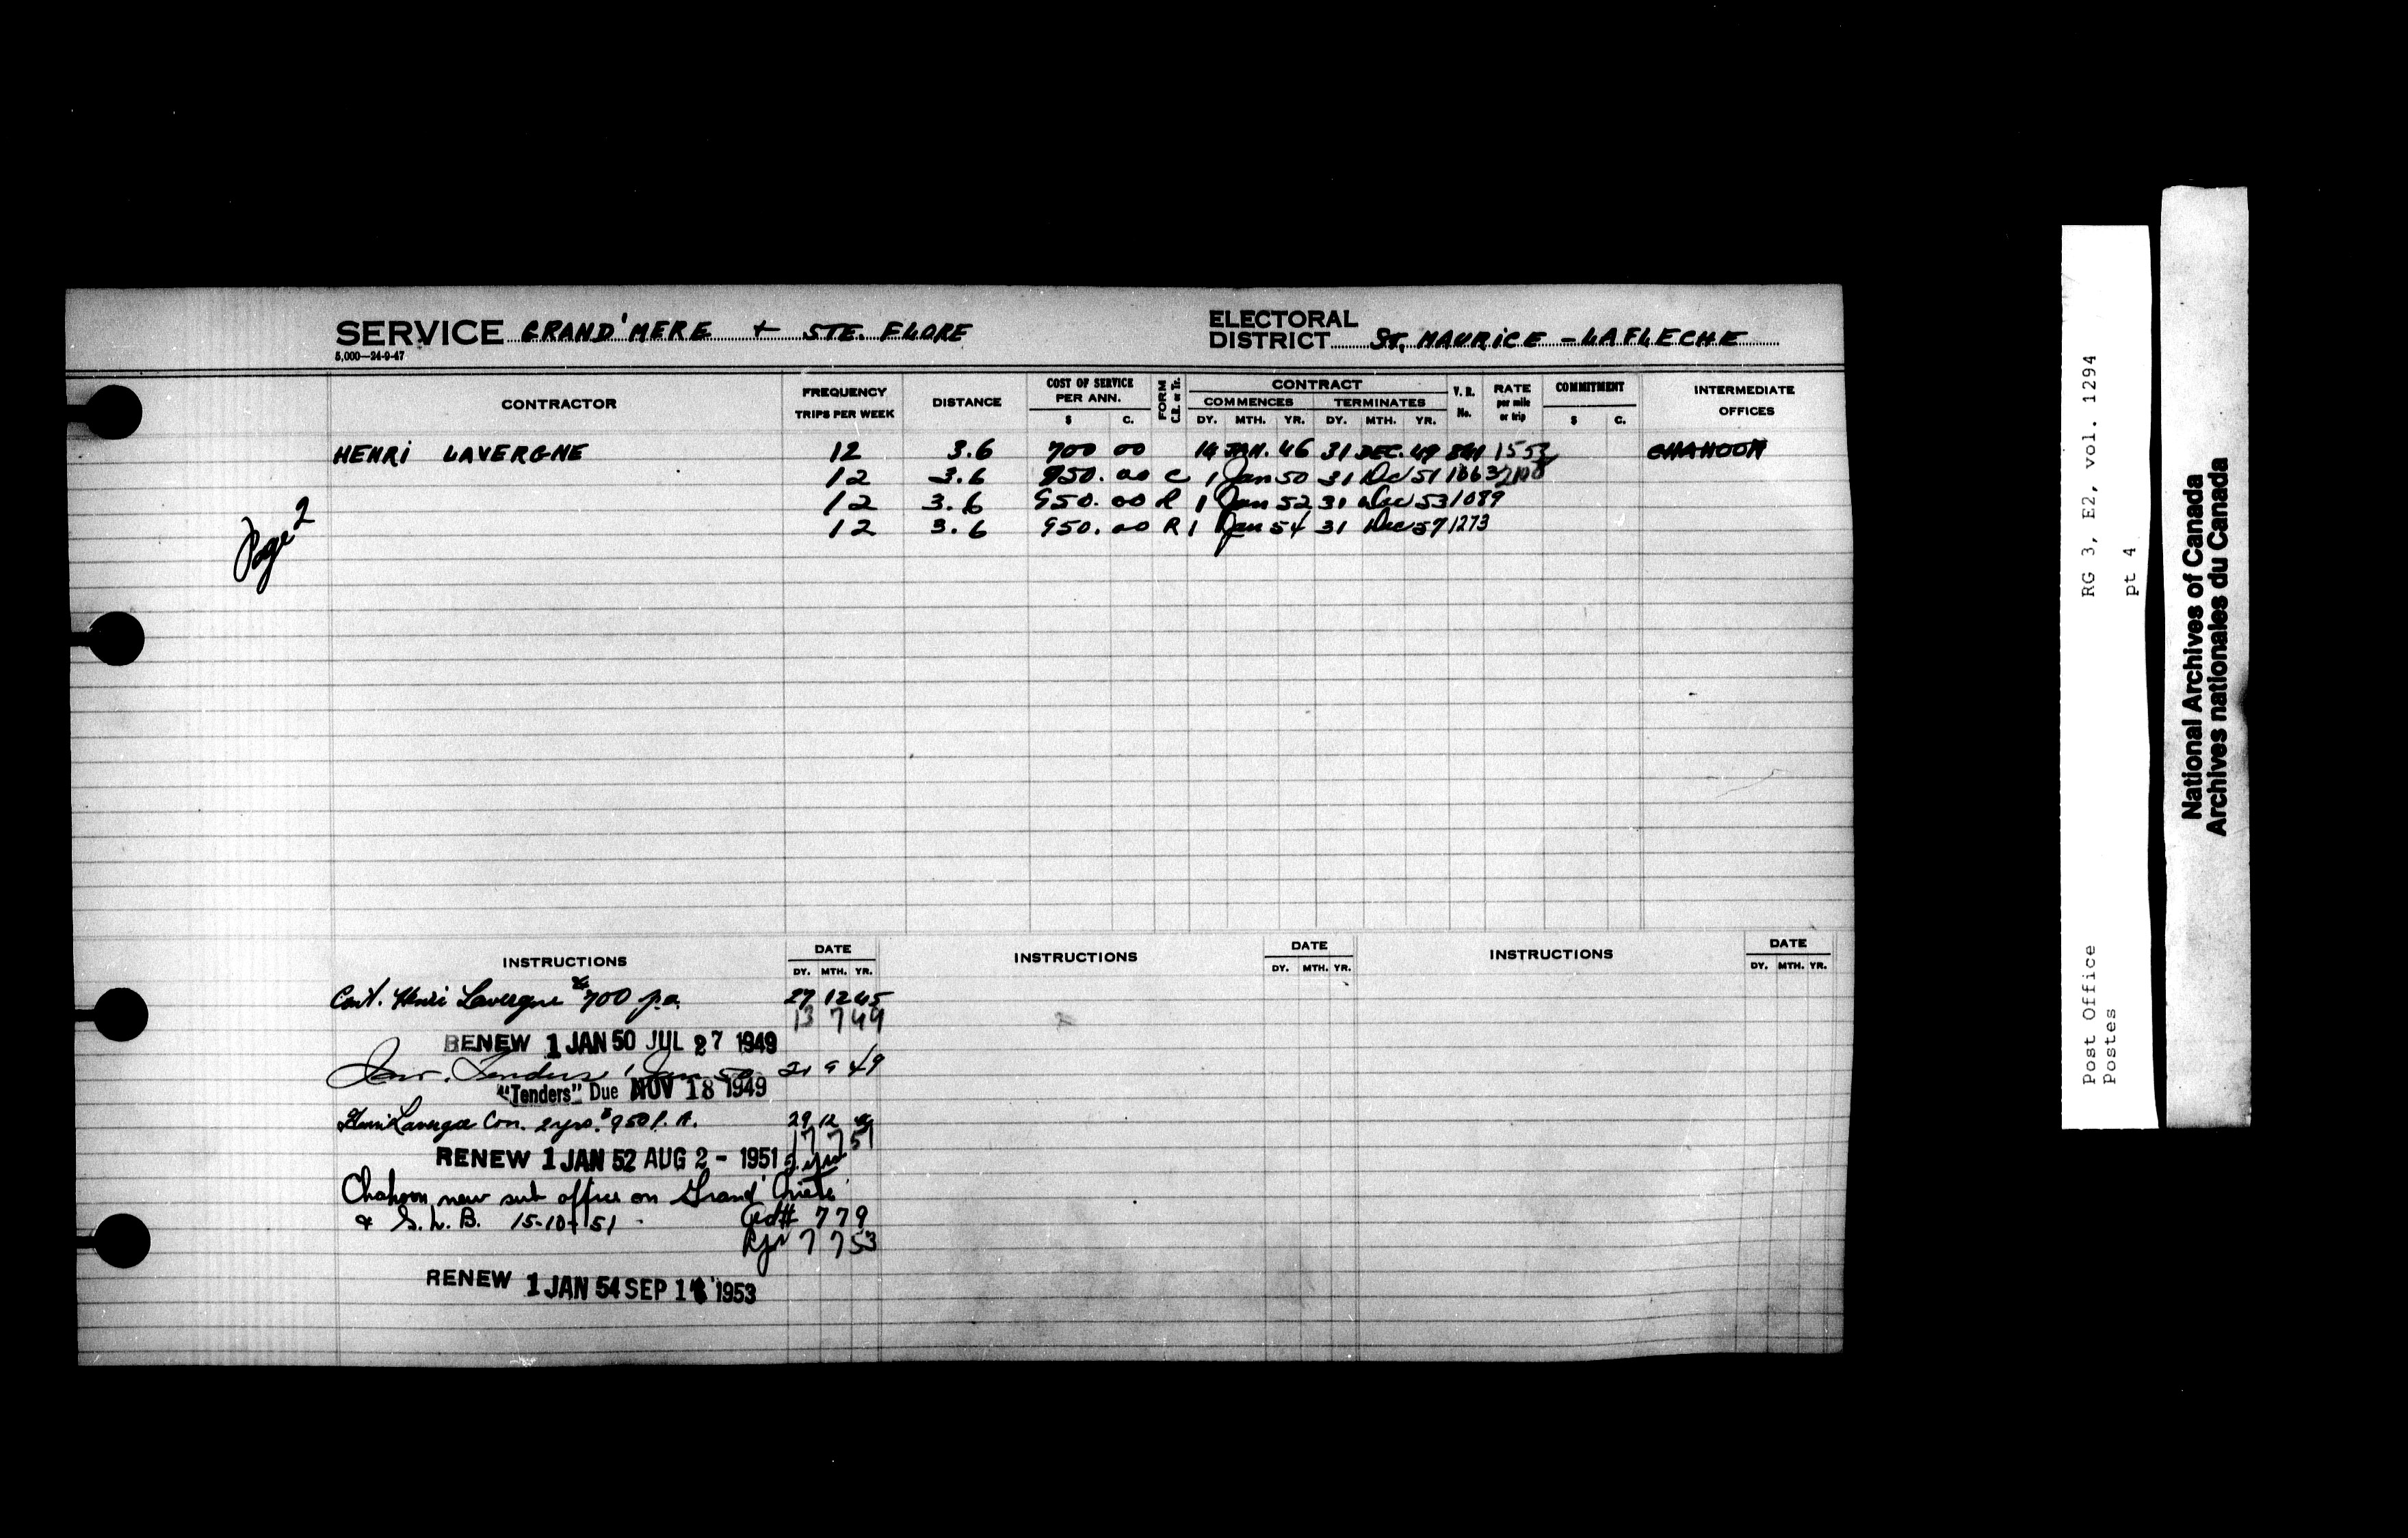 SERVICE GRAND'MERE + STE. FLORE
ELECTORAL DISTRICT ST. MAURICE - LAFLECHE
5,000—24-9-47
CONTRACTOR
FREQUENCY TRIPS PER WEEK
DISTANCE
COST OF SERVICE PER ANN. $ C.
FORM C.R. or Tr.
CONTRACT
COMMENCES DY. MTH. YR.
TERMINATES DY. MTH. YR.
V. R. No.
RATE per mile or trip
COMMITMENT $ C.
INTERMEDIATE OFFICES
HENRI LAVERGNE 12 3.6 700 00 14 JAN. 46 31 DEC. 49 CHAHOON
12 3.6 950. 00 C 1 Jan 50 31 Dec 51
12 3.6 950. 00 R 1 Jan 52 31 Dec 53 1089
12 3.6 950. 00 R 1 Jan 54 31 Dec 57 1273
Page 2
INSTRUCTIONS DATE DY. MTH. YR.
INSTRUCTIONS DATE DY. MTH. YR.
INSTRUCTIONS DATE DY. MTH. YR.
Cont. Henri Lavergne $700 p.a. 27 12 45
13 7 49
RENEW 1 JAN 50 JUL 27 1949
Tenders 1 Jan 50 21 9 49
"Tenders" Due NOV 18 1949
Henri Lavergne Con. 2 yrs. $950 P.A. 29 12
17 7 51
RENEW 1 JAN 52 AUG 2 - 1951 2 yrs
Chahoon new sub office on Grand'
& S. W. B. 15-10-51 779
7 7 53
RENEW 1 JAN 54 SEP 1 1953
RG 3, E2, vol. 1294
pt 4
Post Office
Postes
National Archives of Canada
Archives nationales du Canada